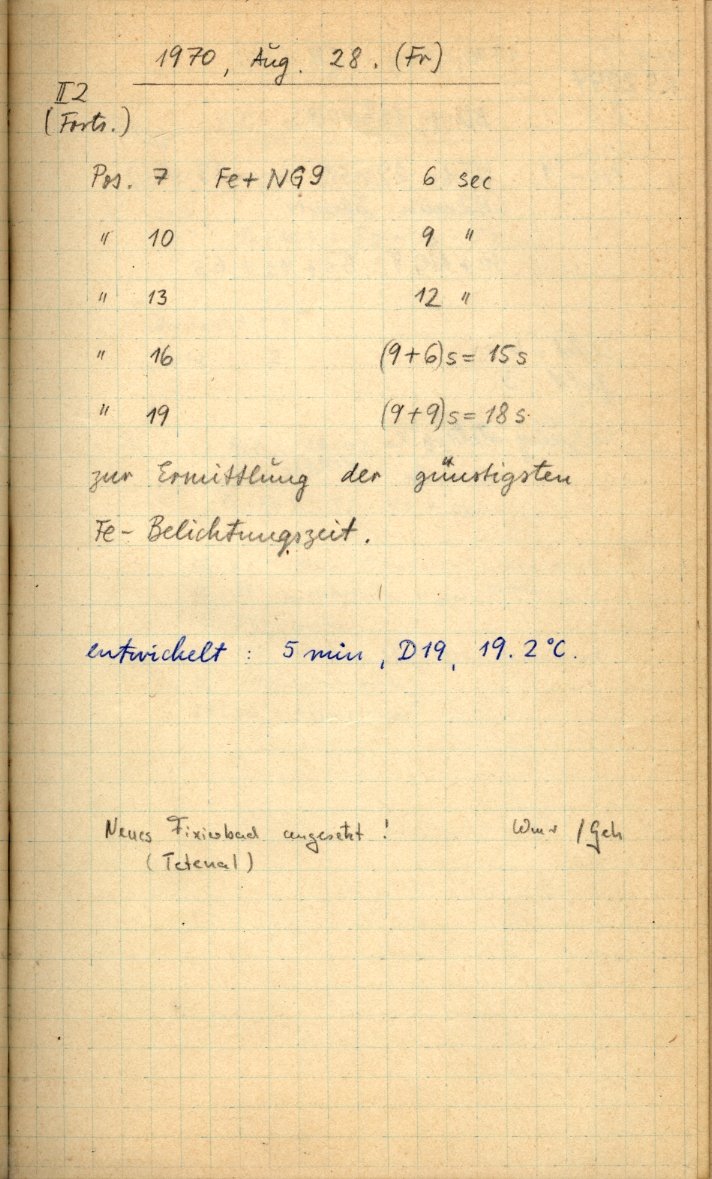 1970, Aug. 28. (Fr)
II2
(Forts.)
Pos. 7 Fe+NG9 6 sec
" 10 9 "
" 13 12 "
" 16 (9+6)s = 15s
" 19 (9+9)s = 18s
zur Ermittlung der günstigsten
Fe-Belichtungszeit.
entwickelt : 5 min, D19, 19.2°C.
Neues Fixierbad angesetzt ! /Geh
(Tetenal)